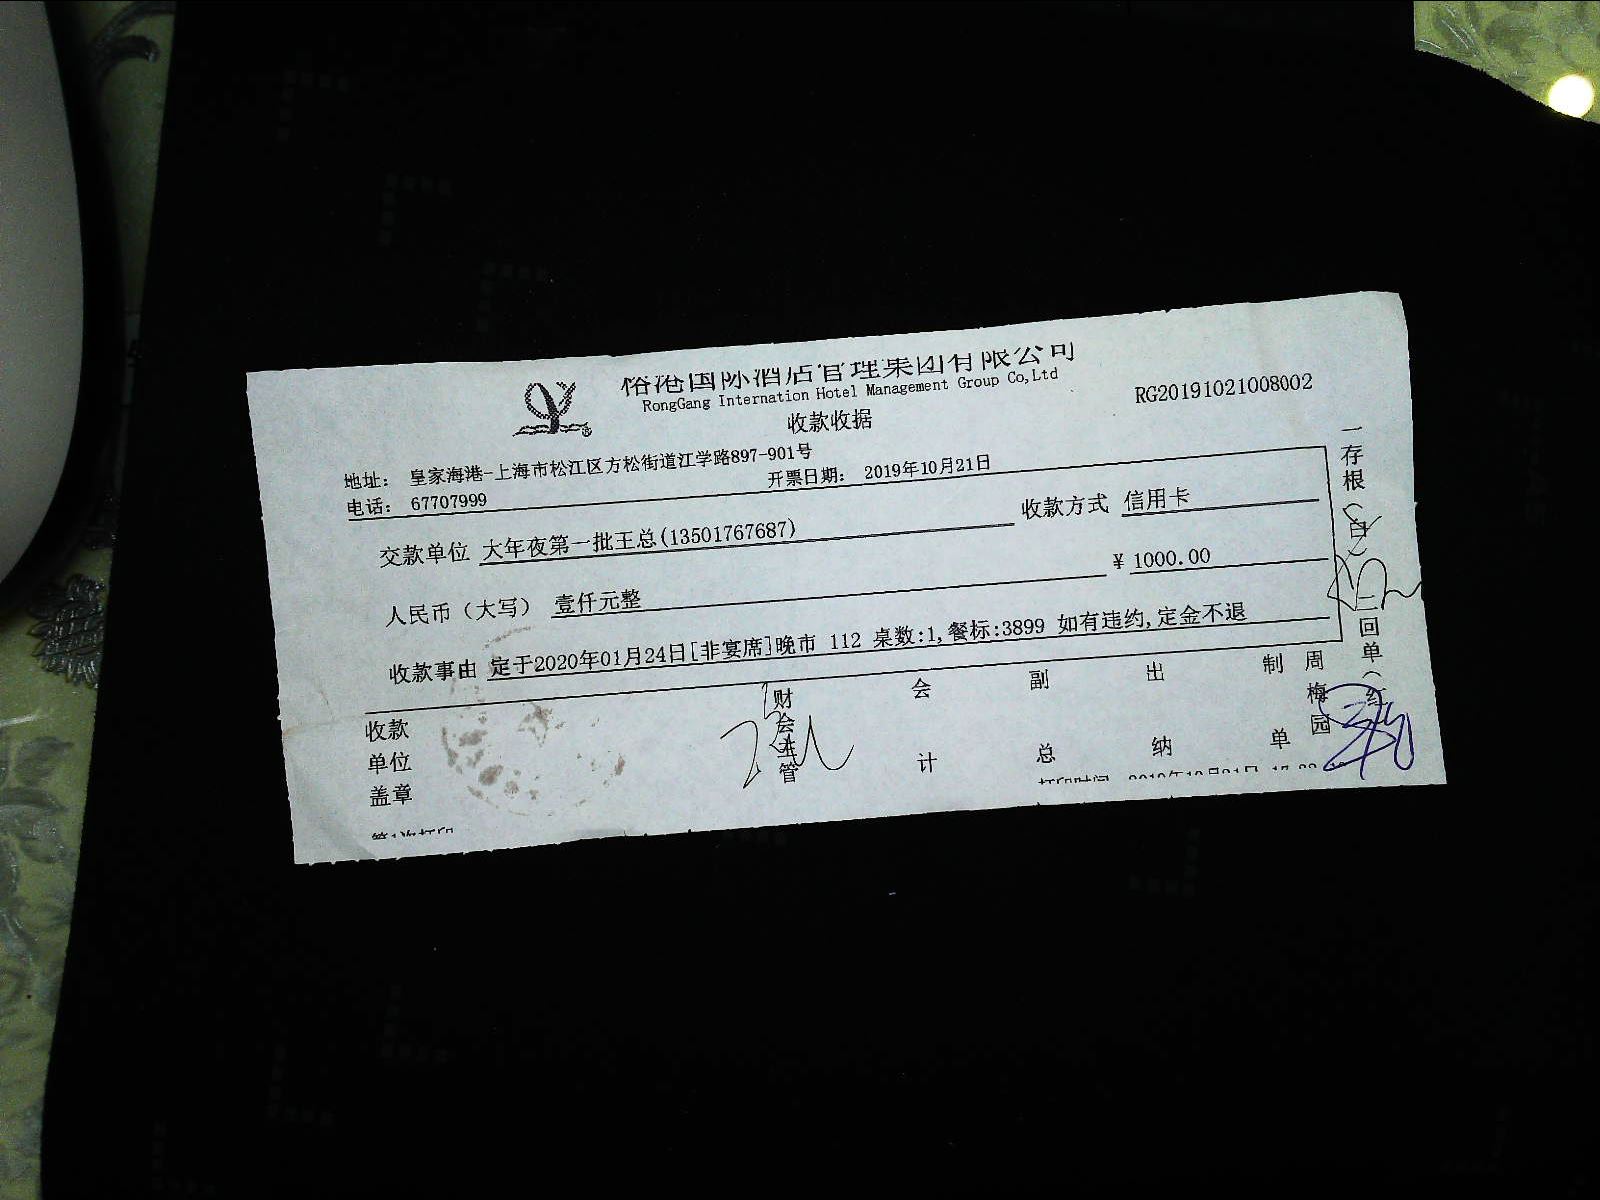 国际酒店管理集团有限公司
RongGang Internation Hotel Management Group Co,Ltd
收款收据
RG20191021008002
地址： 皇家海港-上海市松江区方松街道江学路897-901号
电话： 67707999
开票日期： 2019年10月21日
交款单位 大年夜第一批王总(13501767687)
收款方式 信用卡
人民币（大写） 壹仟元整
¥ 1000.00
收款事由 定于2020年01月24日[非宴席]晚市 112 桌数:1,餐标:3899 如有违约,定金不退
收款单位盖章
财会主管
会计
副总
出纳
制单
周梅园
一存根（白）二回单（红
第1次打印
打印时间 2019年10月21日